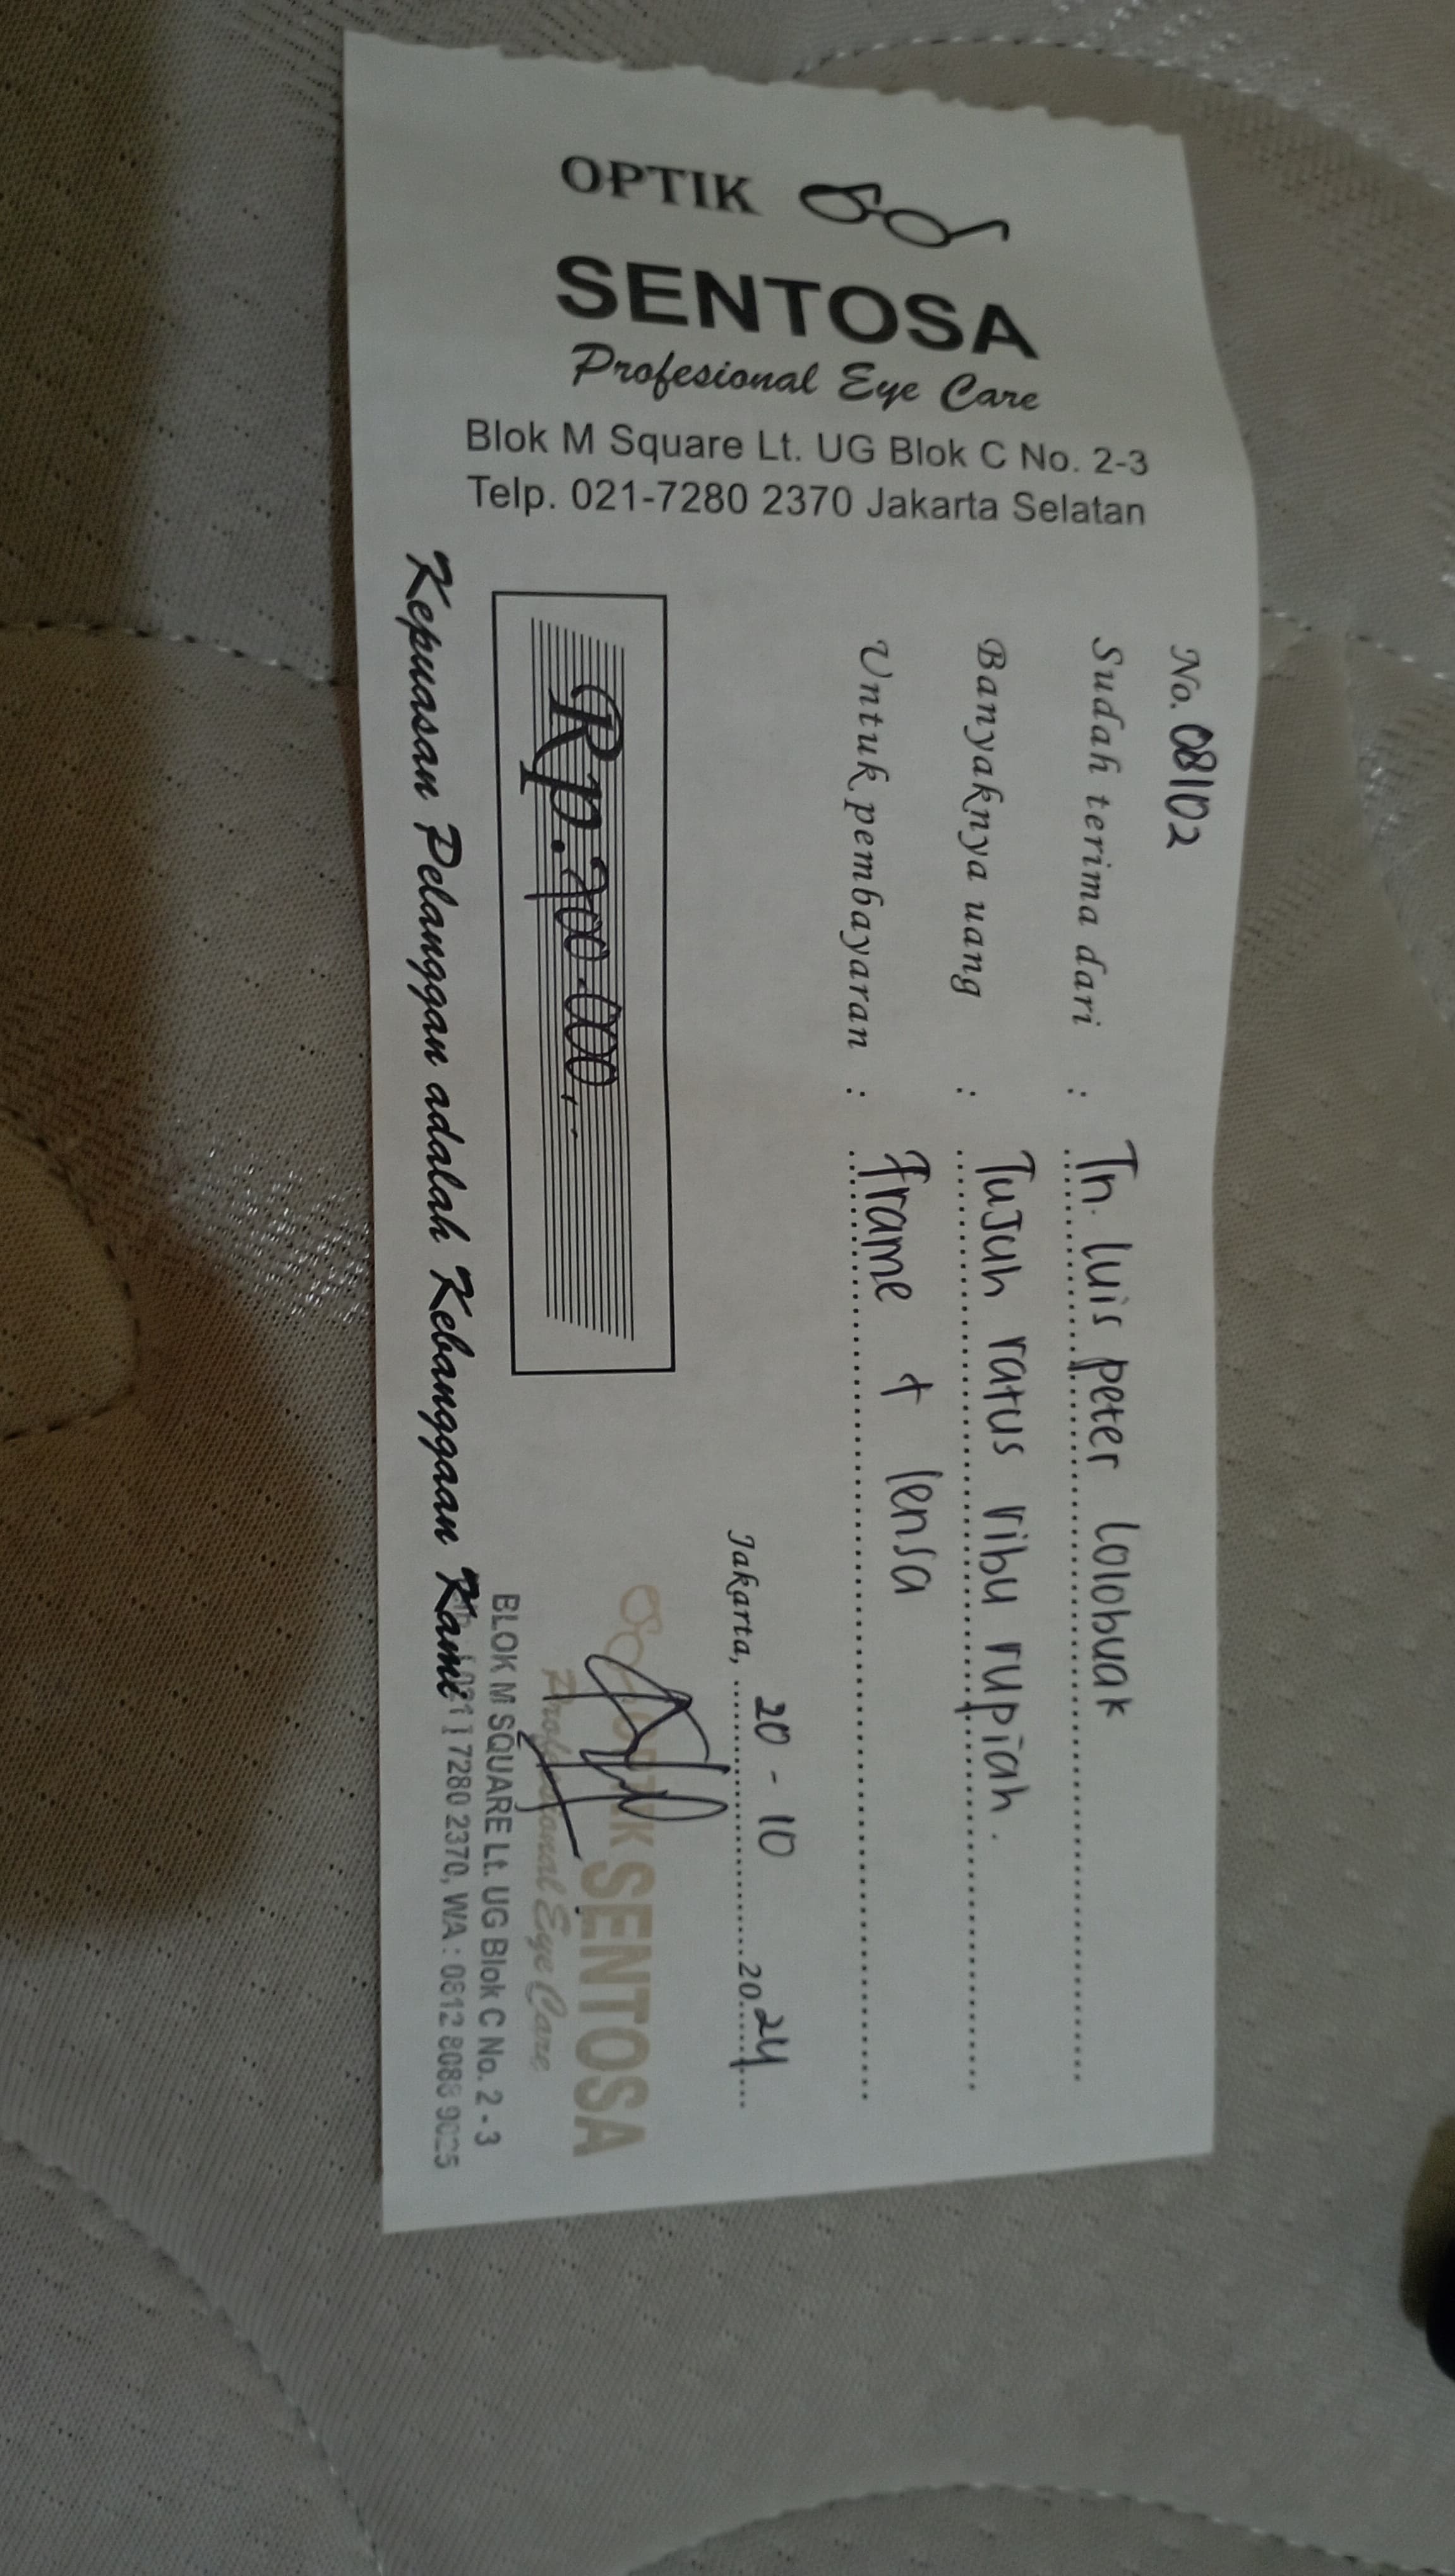 OPTIK
SENTOSA
Profesional Eye Care
Blok M Square Lt. UG Blok C No. 2-3
Telp. 021-7280 2370 Jakarta Selatan
No. 08102
Sudah terima dari : Tn. luis peter lolobuak
Banyaknya uang : Tujuh ratus ribu rupiah.
Untuk pembayaran : Frame + lensa
Jakarta, 20 - 10 2024
Rp. 700.000,-
OPTIK SENTOSA
Profesional Eye Care
BLOK M SQUARE Lt. UG Blok C No. 2 - 3
[ 021 ] 7280 2370, WA : 0812 8088 9025
Kepuasan Pelanggan adalah Kebanggaan Kami